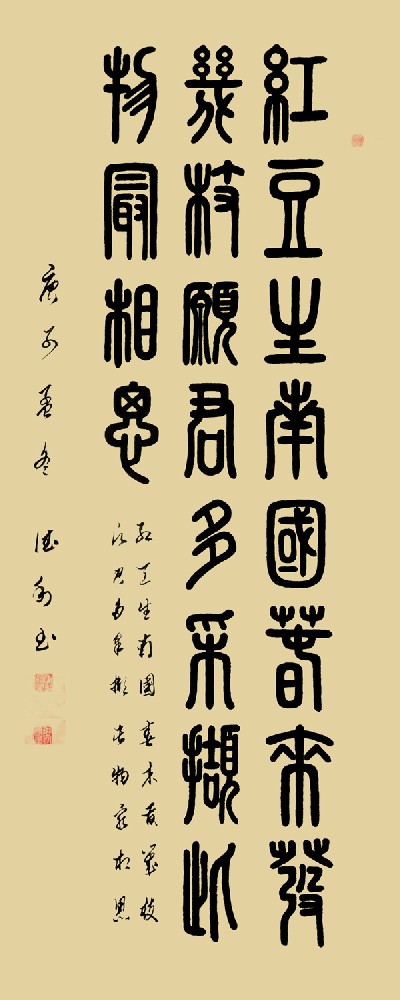 紅豆生南國春來發
幾枝願君多采擷此
物最相思
紅豆生南國春來發幾枝
願君多采擷此物最相思
庚子孟冬 書